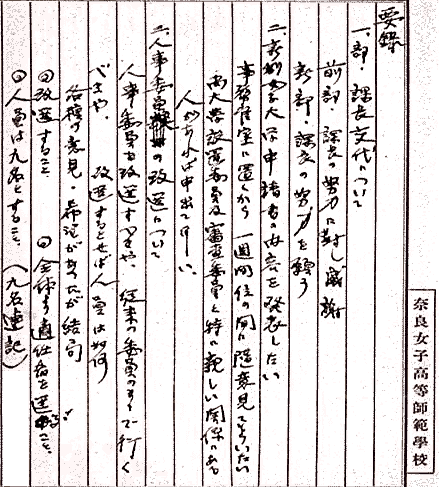 要録
一、部・課長交代について
前部・課長の努力に対し感謝
新部・課長の努力を願う
二、奈良女子大学申請書の内容を発表したい
事務官室に置くから一週間位の間に随意見てもらいたい
尚大学設置委員及審査委員と特に親しい関係にある
人があれば申出てほしい
三、人事委員の改選について
人事委員を改選すべきや、従来の委員のまゝで行く
べきや、改選するとせば人員は如何
各種の意見・希望があったが結局
㈠改選すること ㈡全体から適任者を選ぶこと、
㈢人員は九名とすること、(九名連記)
奈良女子高等師範學校